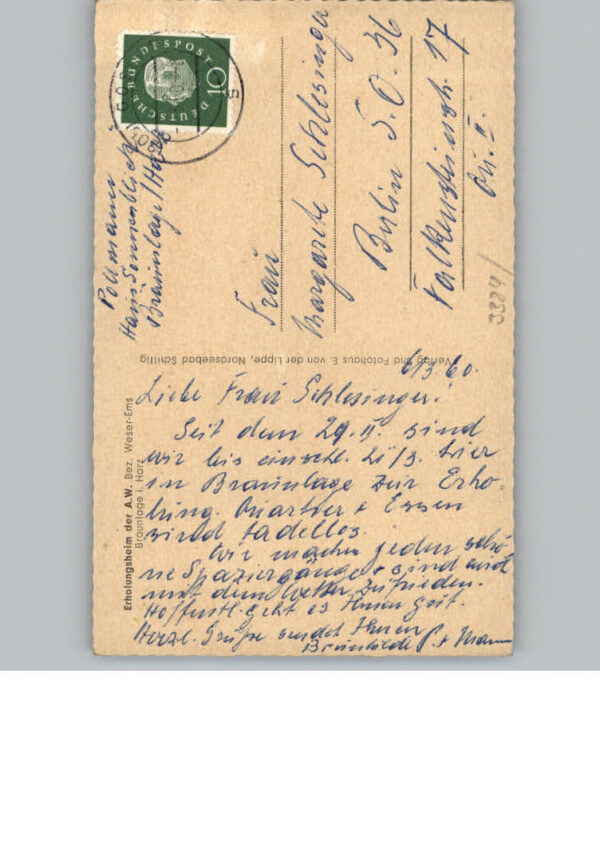 DEUTSCHE BUNDESPOST
10
Pollmann
Haus Sonnenblick
Braunlage/Harz
Frau
Margarete Schlesinger
Berlin S.O. 36
Falkensteinstr. 17
3384/
Verlag und Fotohaus E. von der Lippe, Nordseebad Schillig
Erholungsheim der A.W. Bez. Weser-Ems
Braunlage i. Harz
6/3 60.
Liebe Frau Schlesinger!
Seit dem 29. II. sind
wir bis einschl. 21/3. hier
in Braunlage zur Erho-
lung. Quartier + Essen
sind tadellos.
Wir machen jeden schö-
ne Spaziergänge + sind auch
mit dem Wetter zufrieden.
Hoffentl. geht es Ihnen gut.
Herzl. Grüße sendet Ihnen
Brunhilde P. + Mann